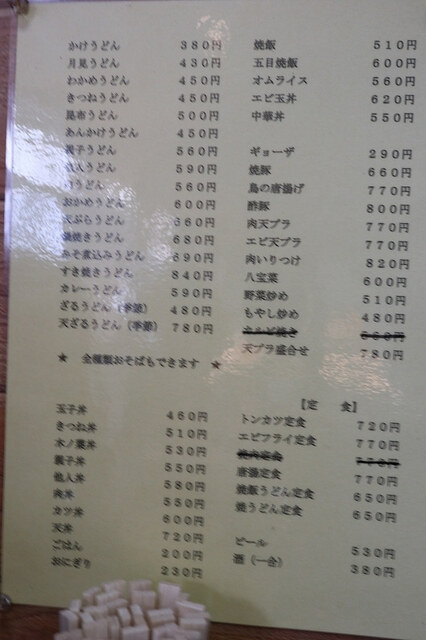 かけうどん 380円
月見うどん 430円
わかめうどん 450円
きつねうどん 450円
昆布うどん 500円
あんかけうどん 450円
親子うどん 560円
うどん 590円
うどん 560円
おかめうどん 600円
天ぷらうどん 660円
鍋焼きうどん 680円
みそ煮込みうどん 690円
すき焼きうどん 840円
カレーうどん 590円
ざるうどん（季節） 480円
天ざるうどん（季節） 780円
★ 全種製おそばもできます ★
焼飯 510円
五目焼飯 600円
オムライス 560円
エビ玉丼 620円
中華丼 550円
ギョーザ 290円
焼豚 660円
鳥の唐揚げ 770円
酢豚 800円
肉天プラ 770円
エビ天プラ 770円
肉いりつけ 820円
八宝菜 600円
野菜炒め 510円
もやし炒め 480円
天プラ盛合せ 780円
玉子丼 460円
きつね丼 510円
木ノ葉丼 530円
親子丼 550円
他人丼 580円
肉丼 550円
カツ丼 600円
天丼 720円
ごはん 200円
おにぎり 230円
【定 食】
トンカツ定食 720円
エビフライ定食 770円
唐揚定食 770円
焼飯うどん定食 650円
焼うどん定食 650円
ビール 530円
酒（一合） 380円